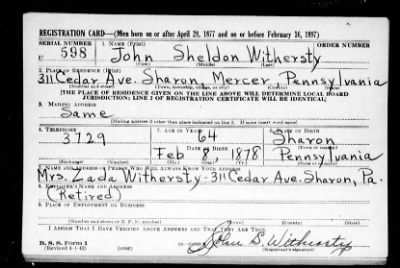 REGISTRATION CARD—(Men born on or after April 28, 1877 and on or before February 16, 1897)
SERIAL NUMBER 1. NAME (Print) ORDER NUMBER
U 598 John Sheldon Withersty
(First) (Middle) (Last)
2. PLACE OF RESIDENCE (Print)
311 Cedar Ave. Sharon, Mercer, Pennsylvania
(Number and street) (Town, township, village, or city) (County) (State)
[THE PLACE OF RESIDENCE GIVEN ON THE LINE ABOVE WILL DETERMINE LOCAL BOARD
JURISDICTION; LINE 2 OF REGISTRATION CERTIFICATE WILL BE IDENTICAL]
3. MAILING ADDRESS
Same
[Mailing address if other than place indicated on line 2. If same insert word same]
4. TELEPHONE 5. AGE IN YEARS 6. PLACE OF BIRTH
3729 64 Sharon
DATE OF BIRTH (Town or county)
Feb 8, 1878 Pennsylvania
(Mo.) (Day) (Yr.) (State or country)
7. NAME AND ADDRESS OF PERSON WHO WILL ALWAYS KNOW YOUR ADDRESS
Mrs. Zada Withersty - 311 Cedar Ave. Sharon, Pa.
8. EMPLOYER'S NAME AND ADDRESS
(Retired)
9. PLACE OF EMPLOYMENT OR BUSINESS
(Number and street or R. F. D. number) (Town) (County) (State)
I AFFIRM THAT I HAVE VERIFIED ABOVE ANSWERS AND THAT THEY ARE TRUE.
D. S. S. Form 1
(Revised 4-1-42) (Registrant's signature)
John S. Withersty